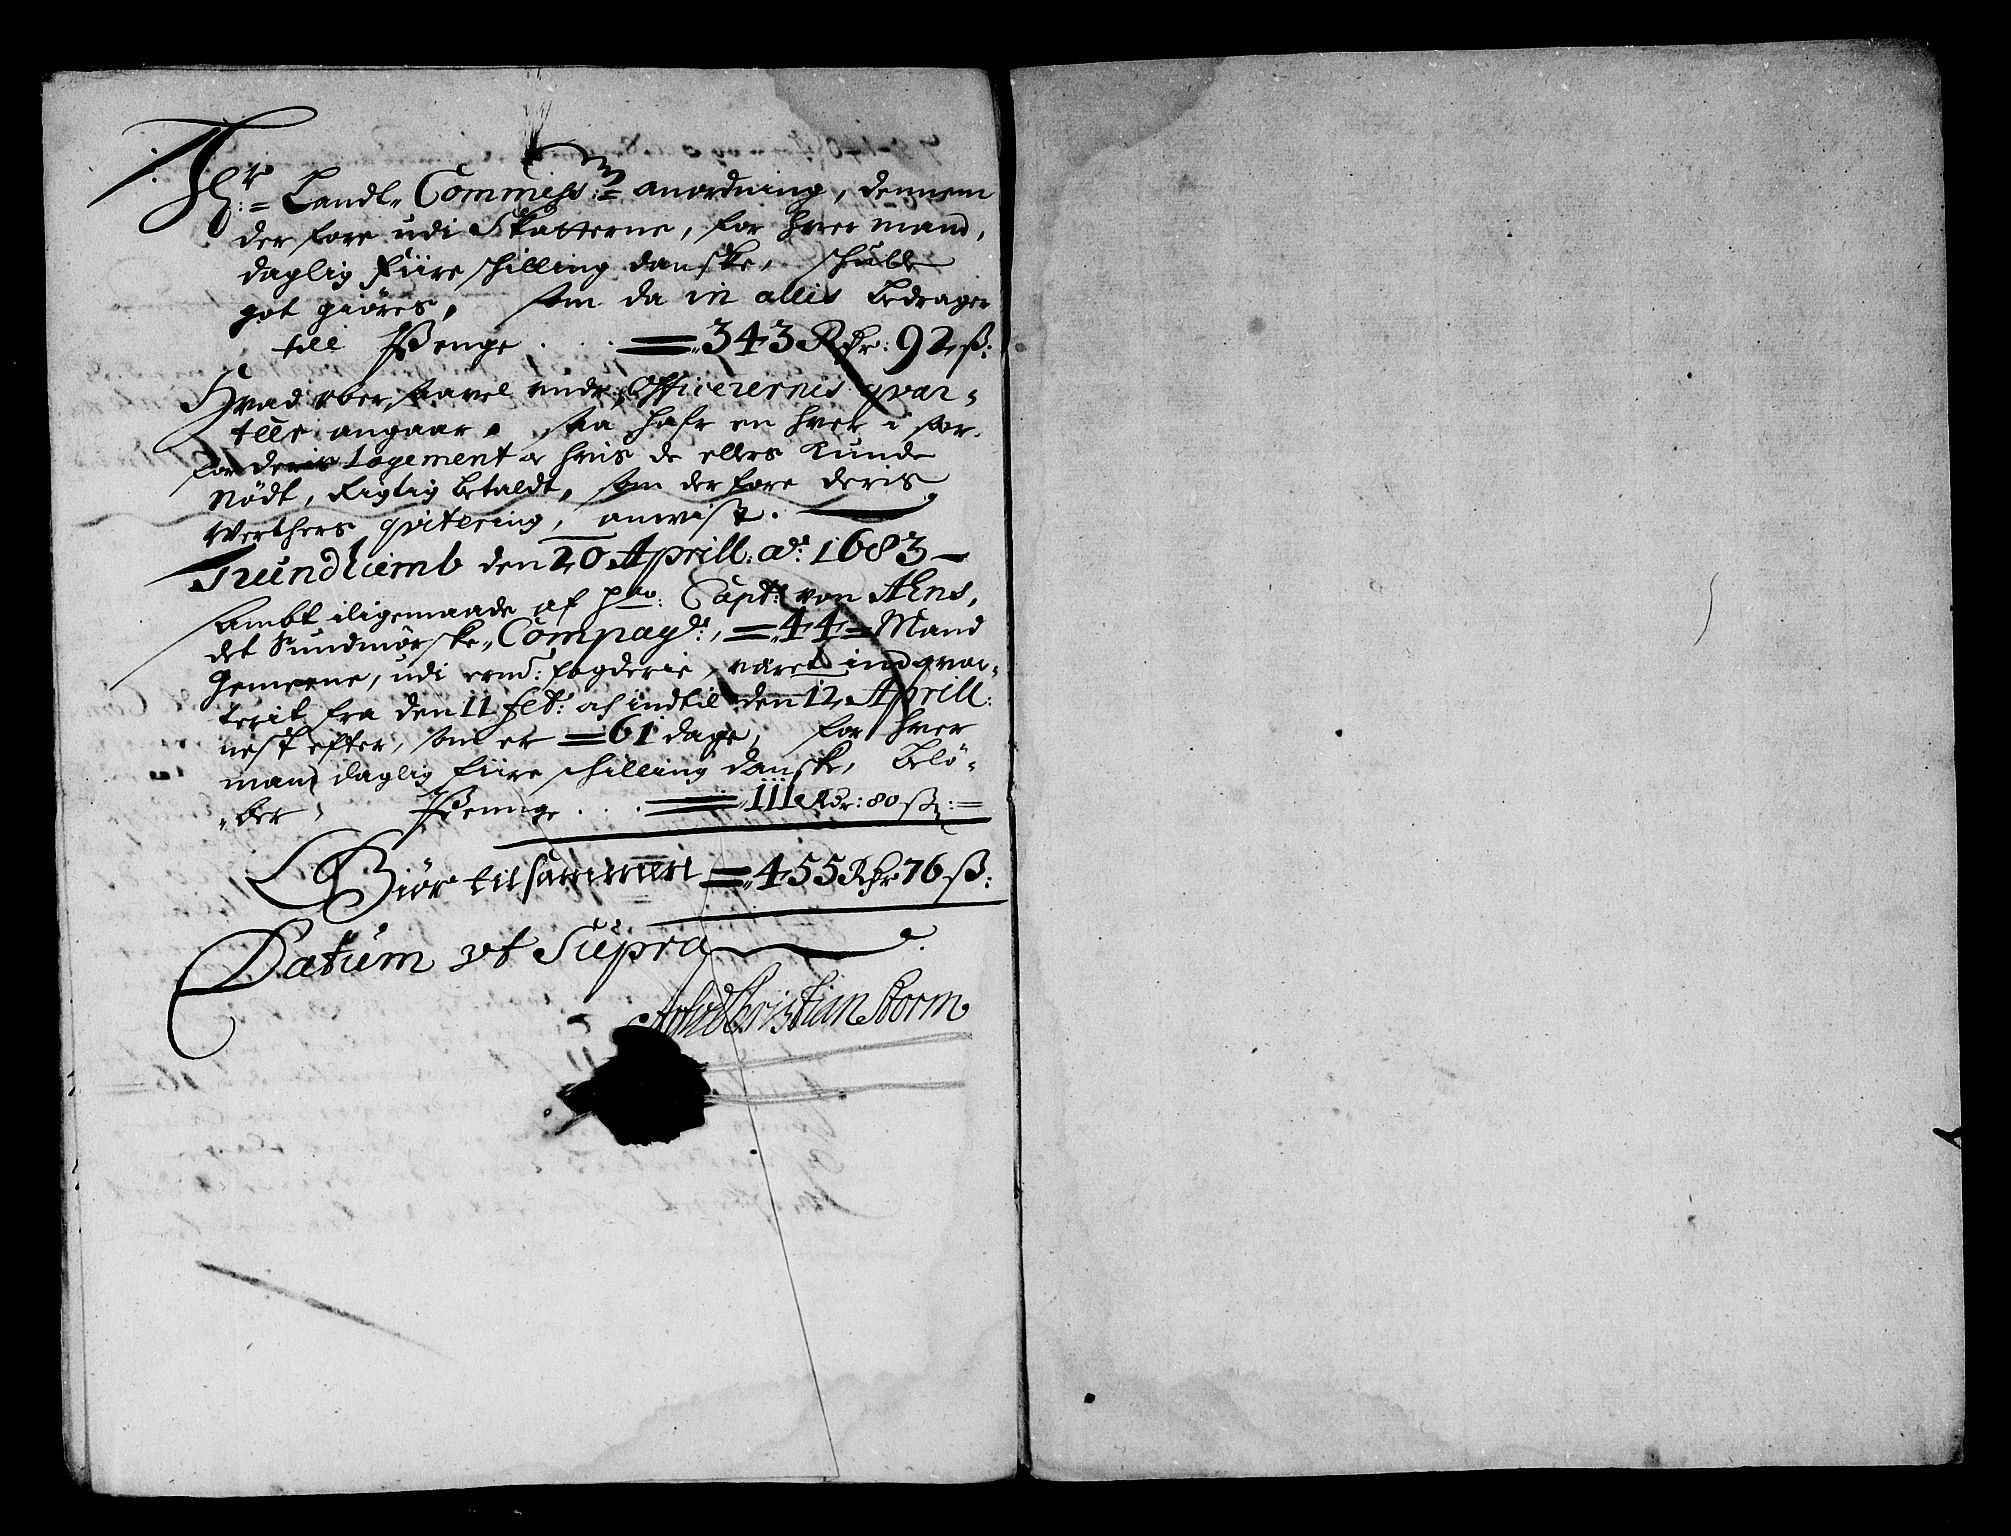 Hr: Landz Commiss: anordning, dennem
der fore udi Skatterne, for hver mand,
daglig fiire schilling danske, schulle
got giöres, som da in allis bedrager
till Penge . . . = 343 Rdr: 92 ß:
Hvad oberstavel undr: Officerernis qvar-
teer angaar, saa hafr en hver i sær,
for deris Logement og hvis de ellers kunde
Nödt, Rigtig betaldt, som der fore deris
Werthers qvitering, anvist.
Trundhiemb den 20 Aprill: ao: 1683
Sambt iligemaade af Capt: von Aens,
det Sundmørske Compag: = 44 = Mand
Gemeene, udi ermd: fogderie, været indqvar-
terit fra den 11 feb: och indtil den 12 Aprill:
nest efter, som er = 61 dage, for hver
mand daglig fiire schilling danske, belö-
ber Penge . . . = 111 Rdr: 80 ß: =
Giör tilsammen = 455 Rdr 76 ß:
Datum ut Supra
Christian Storm